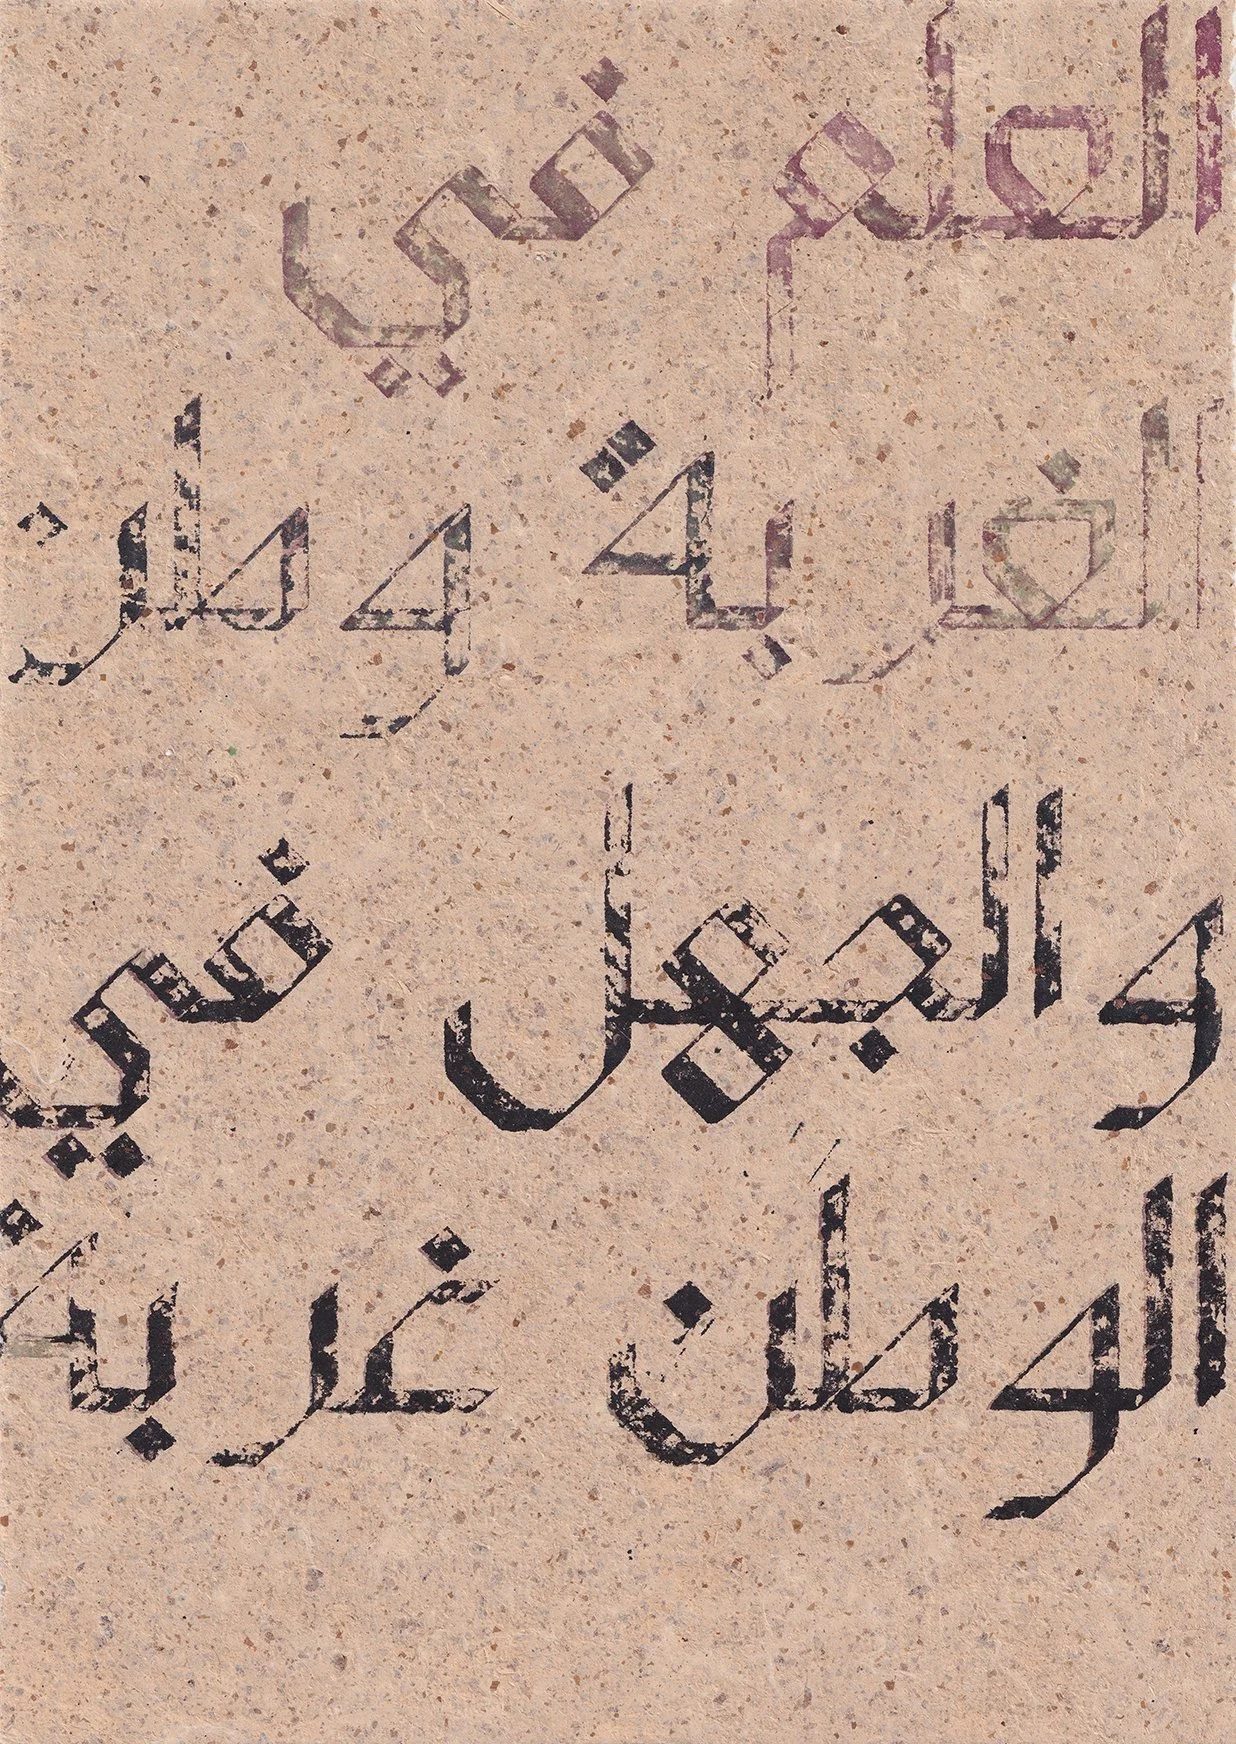 العلم في
الغربة وطن
والجهل في
الوطن غربة